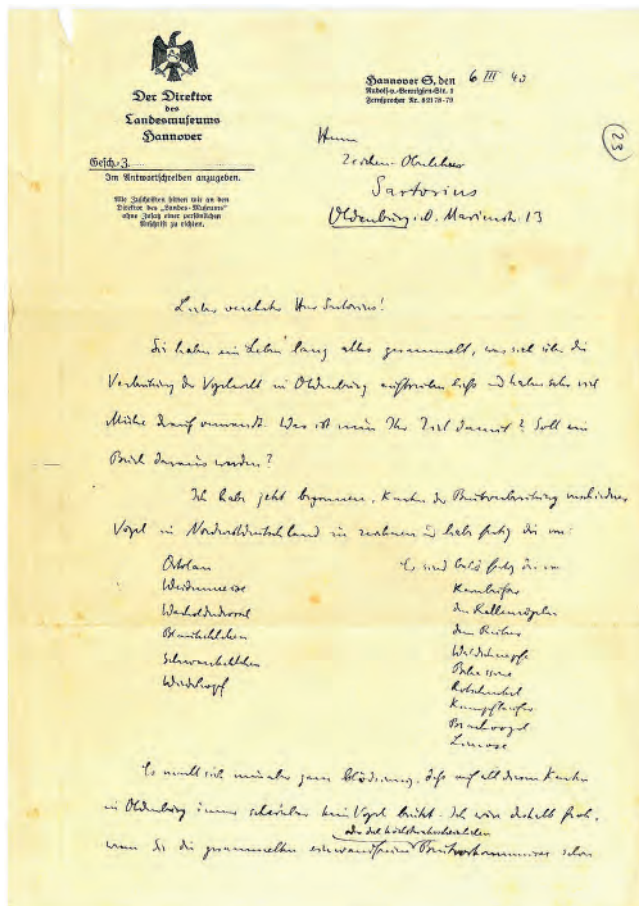 Der Direktor
des
Landesmuseums
Hannover
Gesch. 3.
Im Antwortschreiben anzugeben.
Alle Zuschriften bitten wir an den
Direktor des „Landes-Museums"
ohne Zusatz einer persönlichen
Anschrift zu richten.
Hannover S, den 6 III 40
Rudolf-v.-Bennigsen-Str. 1
Fernsprecher Nr. 82178-79
23
Herrn
Zeichen-Oberlehrer
Sartorius
Oldenburg i. O. Marienstr. 13
Lieber verehrter Herr Sartorius!
Sie haben ein Leben lang alles gesammelt, was sich über die
Verbreitung der Vogelwelt in Oldenburg auftreiben ließ und haben sehr viel
Mühe darauf verwandt. Was ist nun Ihr Ziel damit? Soll ein
Buch daraus werden?
Ich habe jetzt begonnen, Karten der Brutverbreitung verschiedener
Vögel in Nordwestdeutschland zu zeichnen u. habe fertig die von:
Ortolan
Weidenmeise
Wacholderdrossel
Blaukehlchen
Schwarzkehlchen
Wiedehopf
Es sind bald fertig die von
Kernbeißer
den Rallenvögeln
dem Reiher
Waldschnepfe
Bekassine
Rotschenkel
Kampfläufer
Brachvogel
Limose
Es macht sich nun aber ganz blödsinnig, daß auf all diesen Karten
in Oldenburg immer scheinbar kein Vogel brütet. Ich wäre deshalb froh,
wenn Sie die gesammelten einwandfreien Brutvorkommnisse schon
oder doch höchstwahrscheinlichen